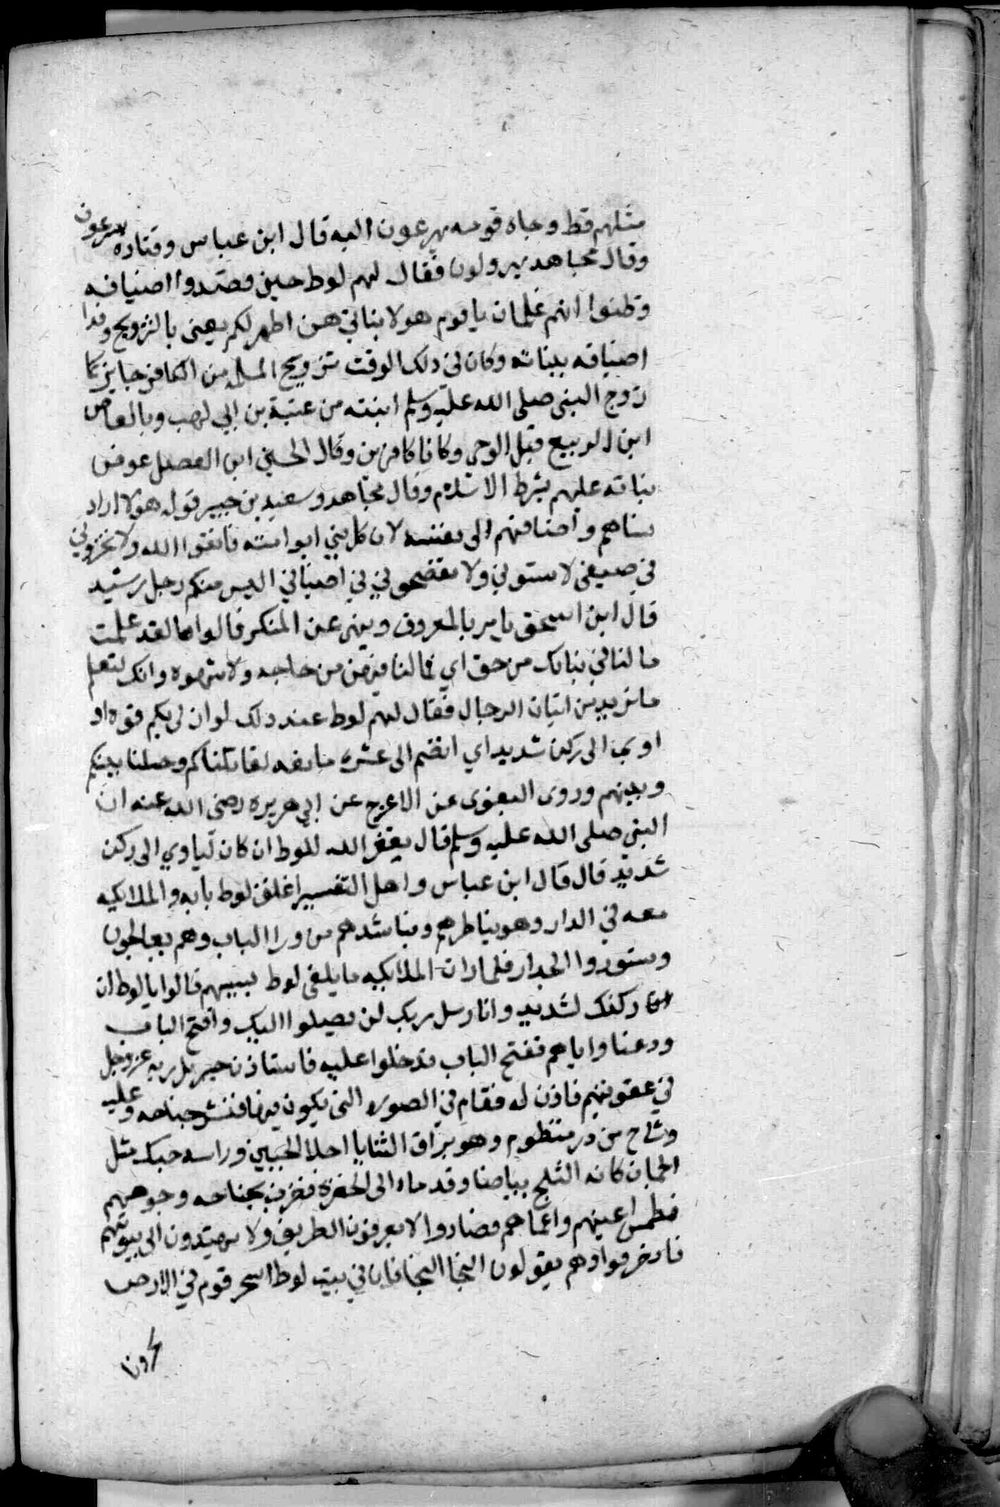 مثلهم قط وجاه قومه يهرعون اليه قال ابن عباس وقتاده يسرعون
وقال مجاهد يهرولون فقال لهم لوط حين قصدوا اضيافه
وظنوا انهم غلمان ياقوم هولا بناتي هن اطهر لكم يعني بالتزويج وفدا
اضيافه ببناته وكان في ذلك الوقت تزويج المسلمه من الكافر جايز كما
زوج النبي صلى الله عليه وسلم ابنته من عتبة بن ابي لهب وبالعاص
ابن الربيع قبل الوحي وكانا كافرين وقال الحسين ابن الفضل عرض
بناته عليهم بشرط الاسلام وقال مجاهد وسعيد بن جبير قوله هولا اراد
نساهم واضافهم الى نفسه لان كل نبي ابو امته فاتقوا الله ولا تخزوني
في ضيفي لا تسوني ولا تفضحوني في اضيافي اليس منكم رجل رشيد
قال ابن اسحق يامر بالمعروف وينهى عن المنكر قالوا لقد علمت
ما لنا في بناتك من حق اي مالنا فيهن من حاجه ولا شهوه وانك لتعلم
ما نريد من اتيان الرجال فقال لهم لوط عند ذلك لو ان لي بكم قوه او
اوي الى ركن شديد اي انضم الى عشيره مانعه لقاتلناكم وحلنا بينكم
وبينهم وروى البغوي عن الاعرج عن ابي هريره رضي الله عنه ان
النبي صلى الله عليه وسلم قال يغفر الله للوط ان كان لياوي الى ركن
شديد قال قال ابن عباس واهل التفسير اغلق لوط بابه والملايكه
معه في الدار وهو يناظرهم ويناشدهم من ورا الباب وهم يعالجون
وتسوروا الجدار فلما رات الملايكه ما يلقى لوط بسببهم قالوا يالوط ان
ركنك لشديد وانا رسل ربك لن يصلوا اليك وافتح الباب
ودعنا واياهم ففتح الباب فدخلوا عليه فاستاذن جبريل ربه عز وجل
في عقوبتهم فاذن له فقام في الصوره التي يكون فيها فنشر جناحه وعليه
وشاح من در منظوم وهو براق الثنايا اجلا الجبين وراسه حبك مثل
الجمان كانه الثلج بياضا وقدماه الى الخضرة فضرب بجناحه وجوههم
فطمس اعينهم واعماهم فصاروا لا يعرفون الطريق ولا يهتدون الى بيوتهم
فانصرفوا وهم يقولون النجا النجا فان في بيت لوط اسحر قوم في الارض